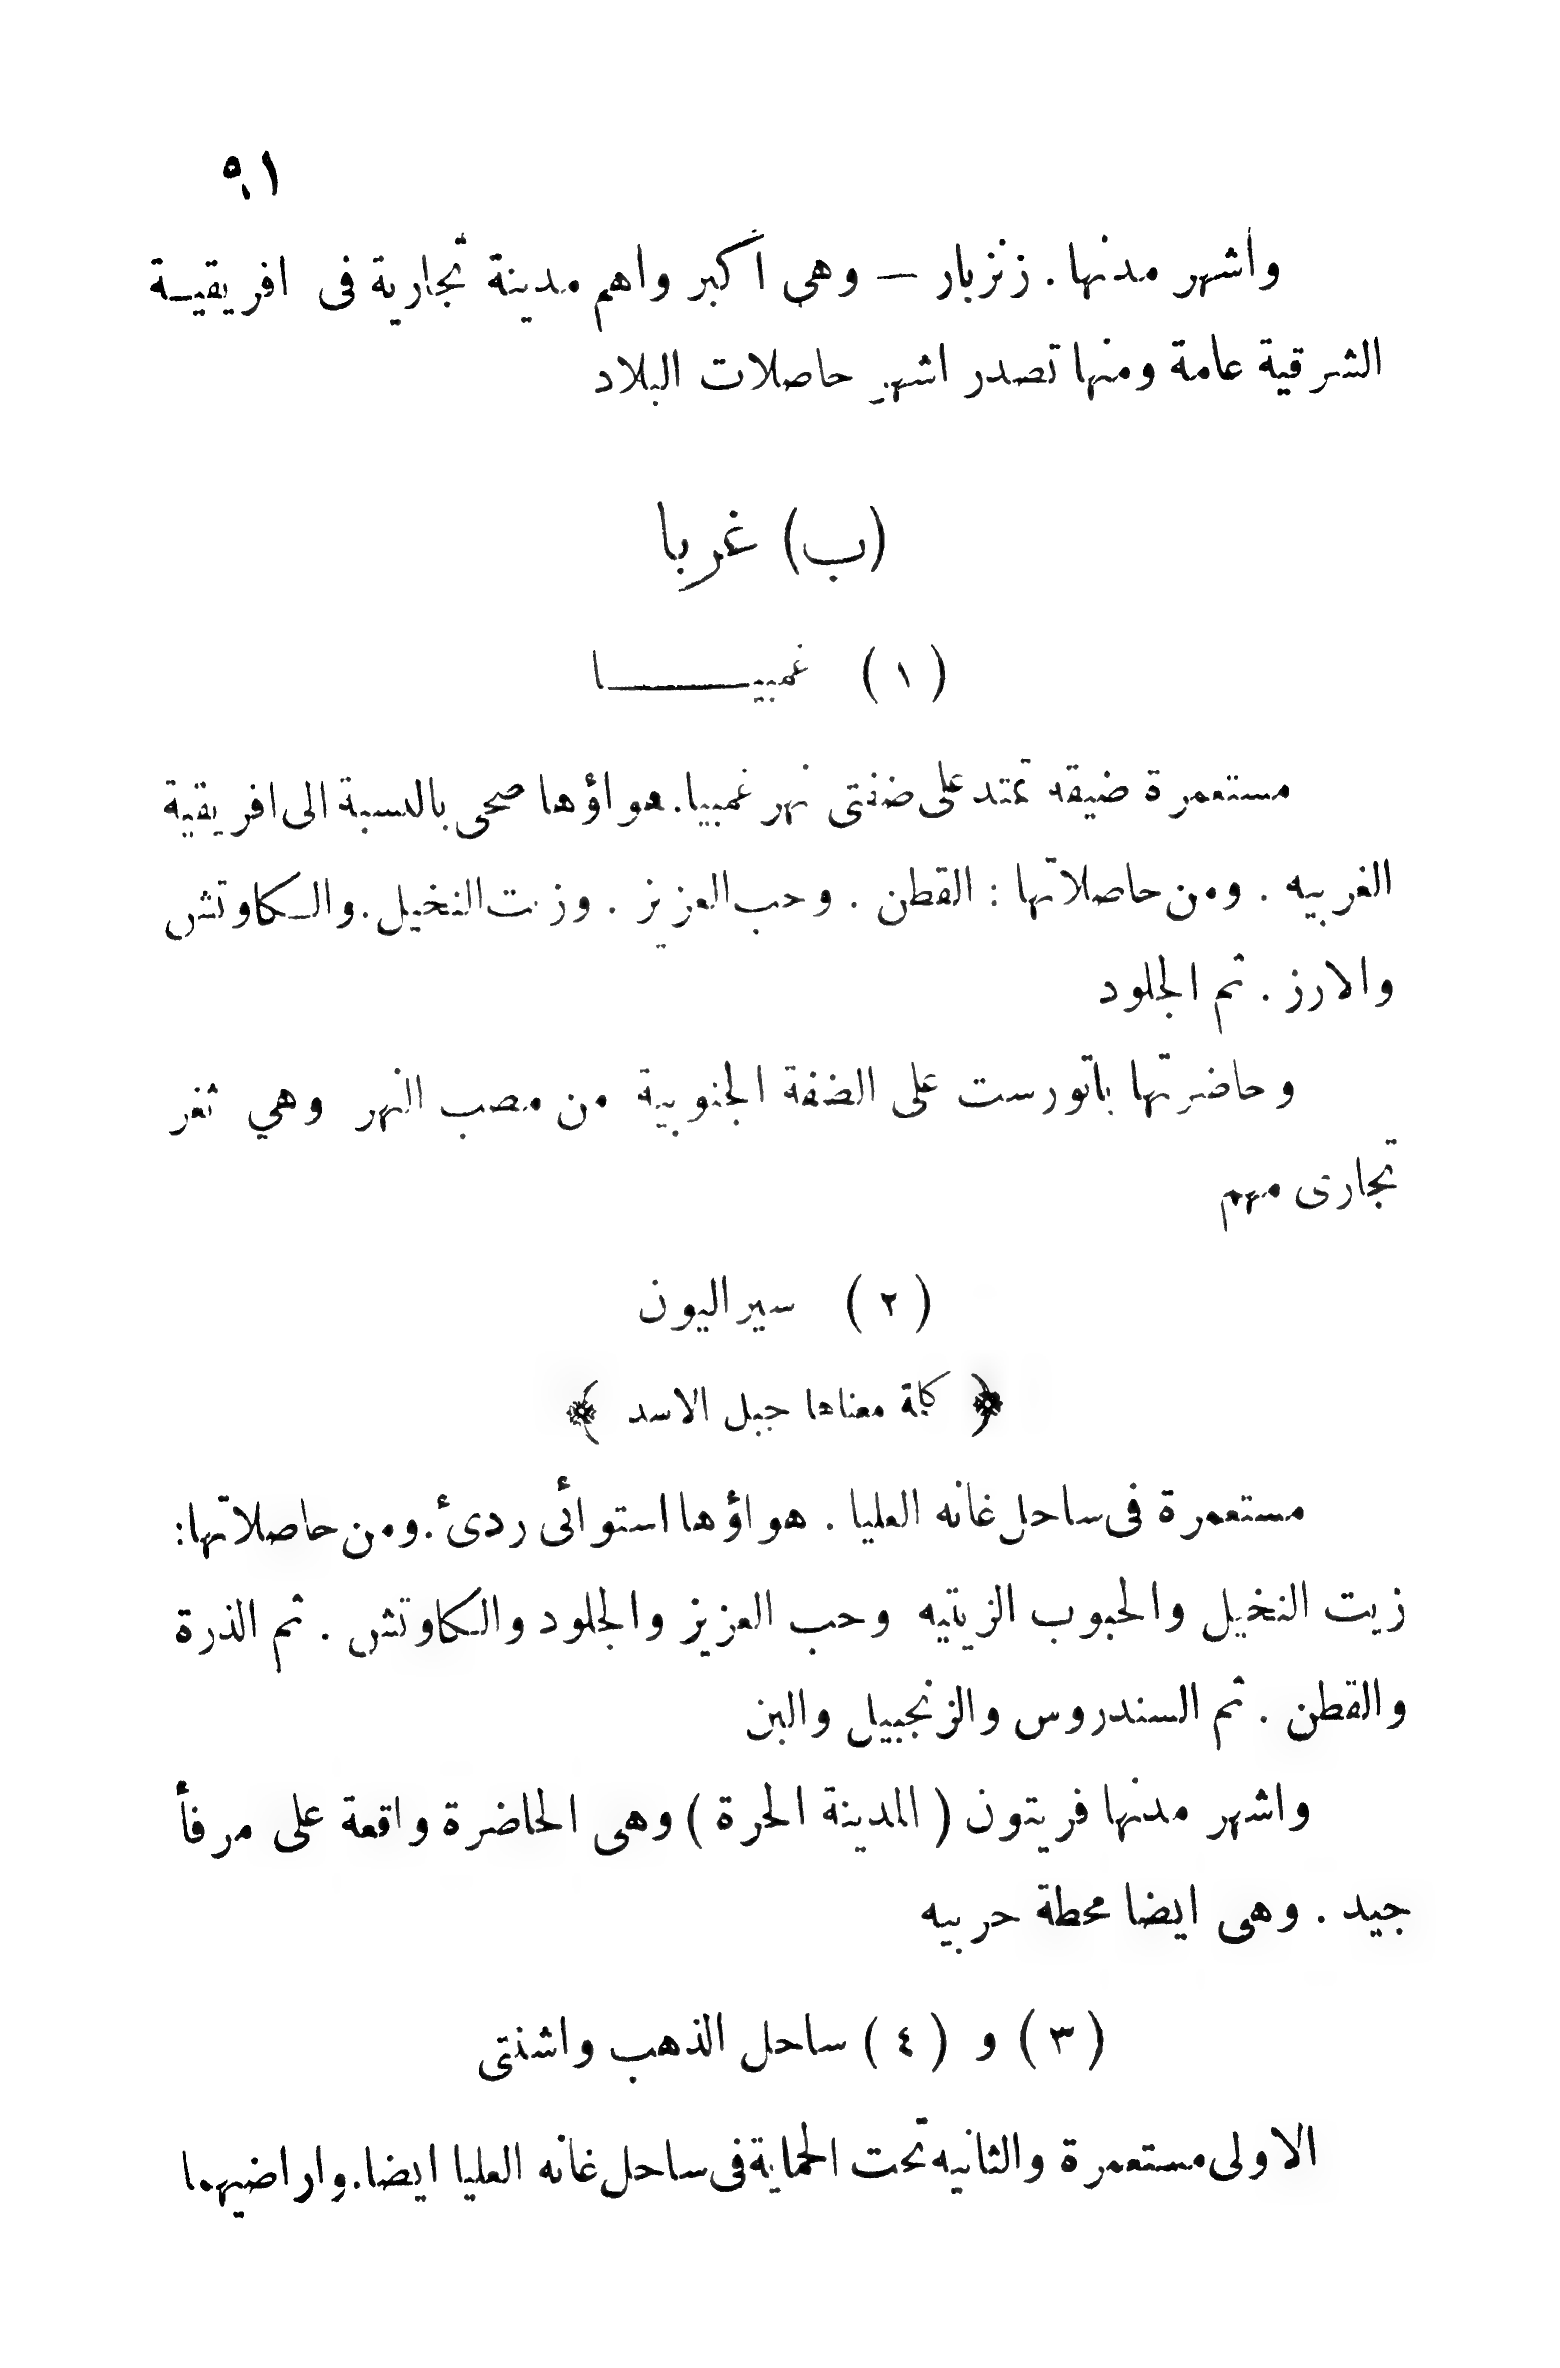 ٩١
واشهر مدنها . زنزبار — وهي اكبر واهم مدينة تجارية فى افريقيـة
الشرقية عامة ومنها تصدر اشهر حاصلات البلاد
(ب) غربا
( ١ ) غمبيـــــا
مستعمرة ضيقه تمتد على ضفتى نهر غمبيا . هواؤها صحى بالنسبة الى افريقية
الغربيه . ومن حاصلاتها : القطن . وحب العزيز . وزيت النخيل . والـكاوتش
والارز . ثم الجلود
وحاضرتها باتورست على الضفة الجنوبية من مصب النهر وهي ثغر
تجارى مهم
( ٢ ) سيراليون
﴿ كلمة معناها جبل الاسد ﴾
مستعمرة فى ساحل غانه العليا . هواؤها استوائى ردئ . ومن حاصلاتها :
زيت النخيل والحبوب الزيتيه وحب العزيز والجلود والـكاوتش . ثم الذرة
والقطن . ثم السندروس والزنجبيل والبن
واشهر مدنها فريتون ( المدينة الحرة ) وهى الحاضرة واقعة على مرفأ
جيد . وهى ايضا محطة حربيه
( ٣ ) و ( ٤ ) ساحل الذهب واشنتى
الاولى مستعمرة والثانيه تحت الحماية فى ساحل غانه العليا ايضا . واراضيهما